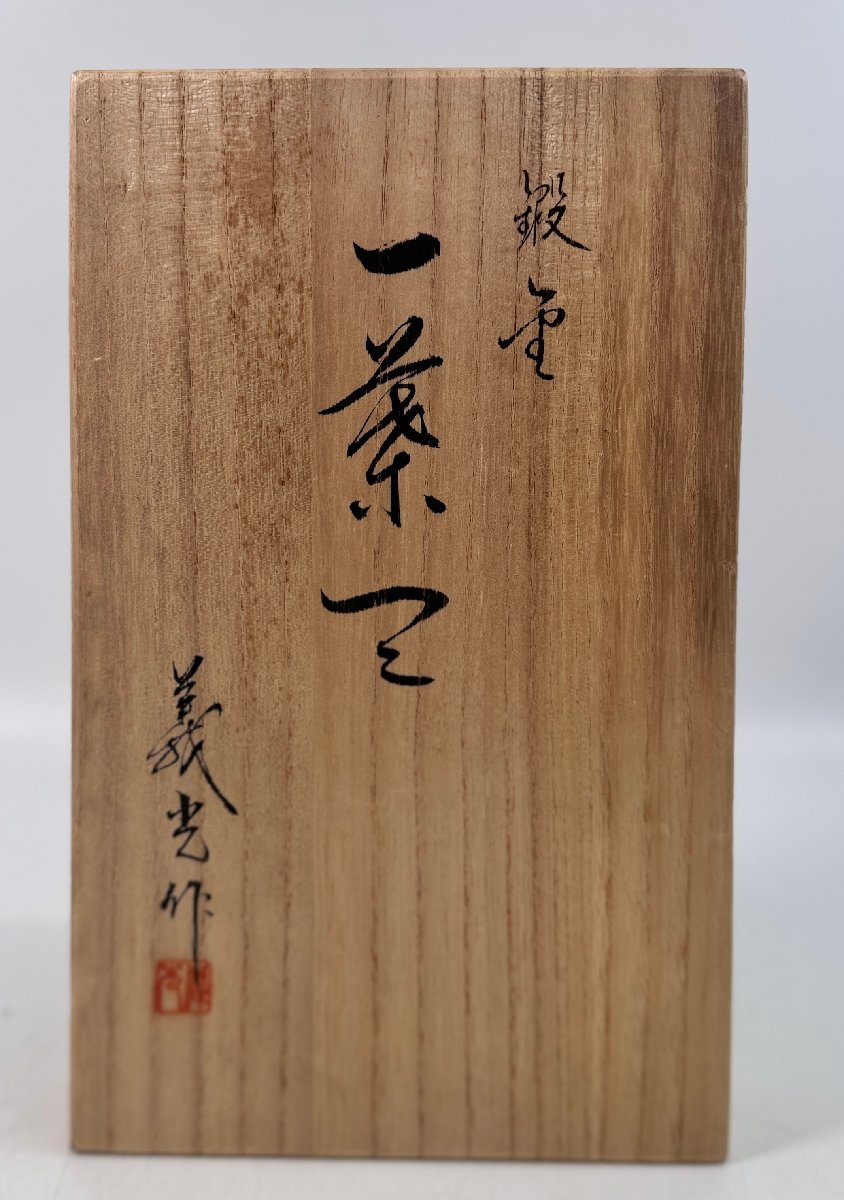 鍛金
一葉
義光作